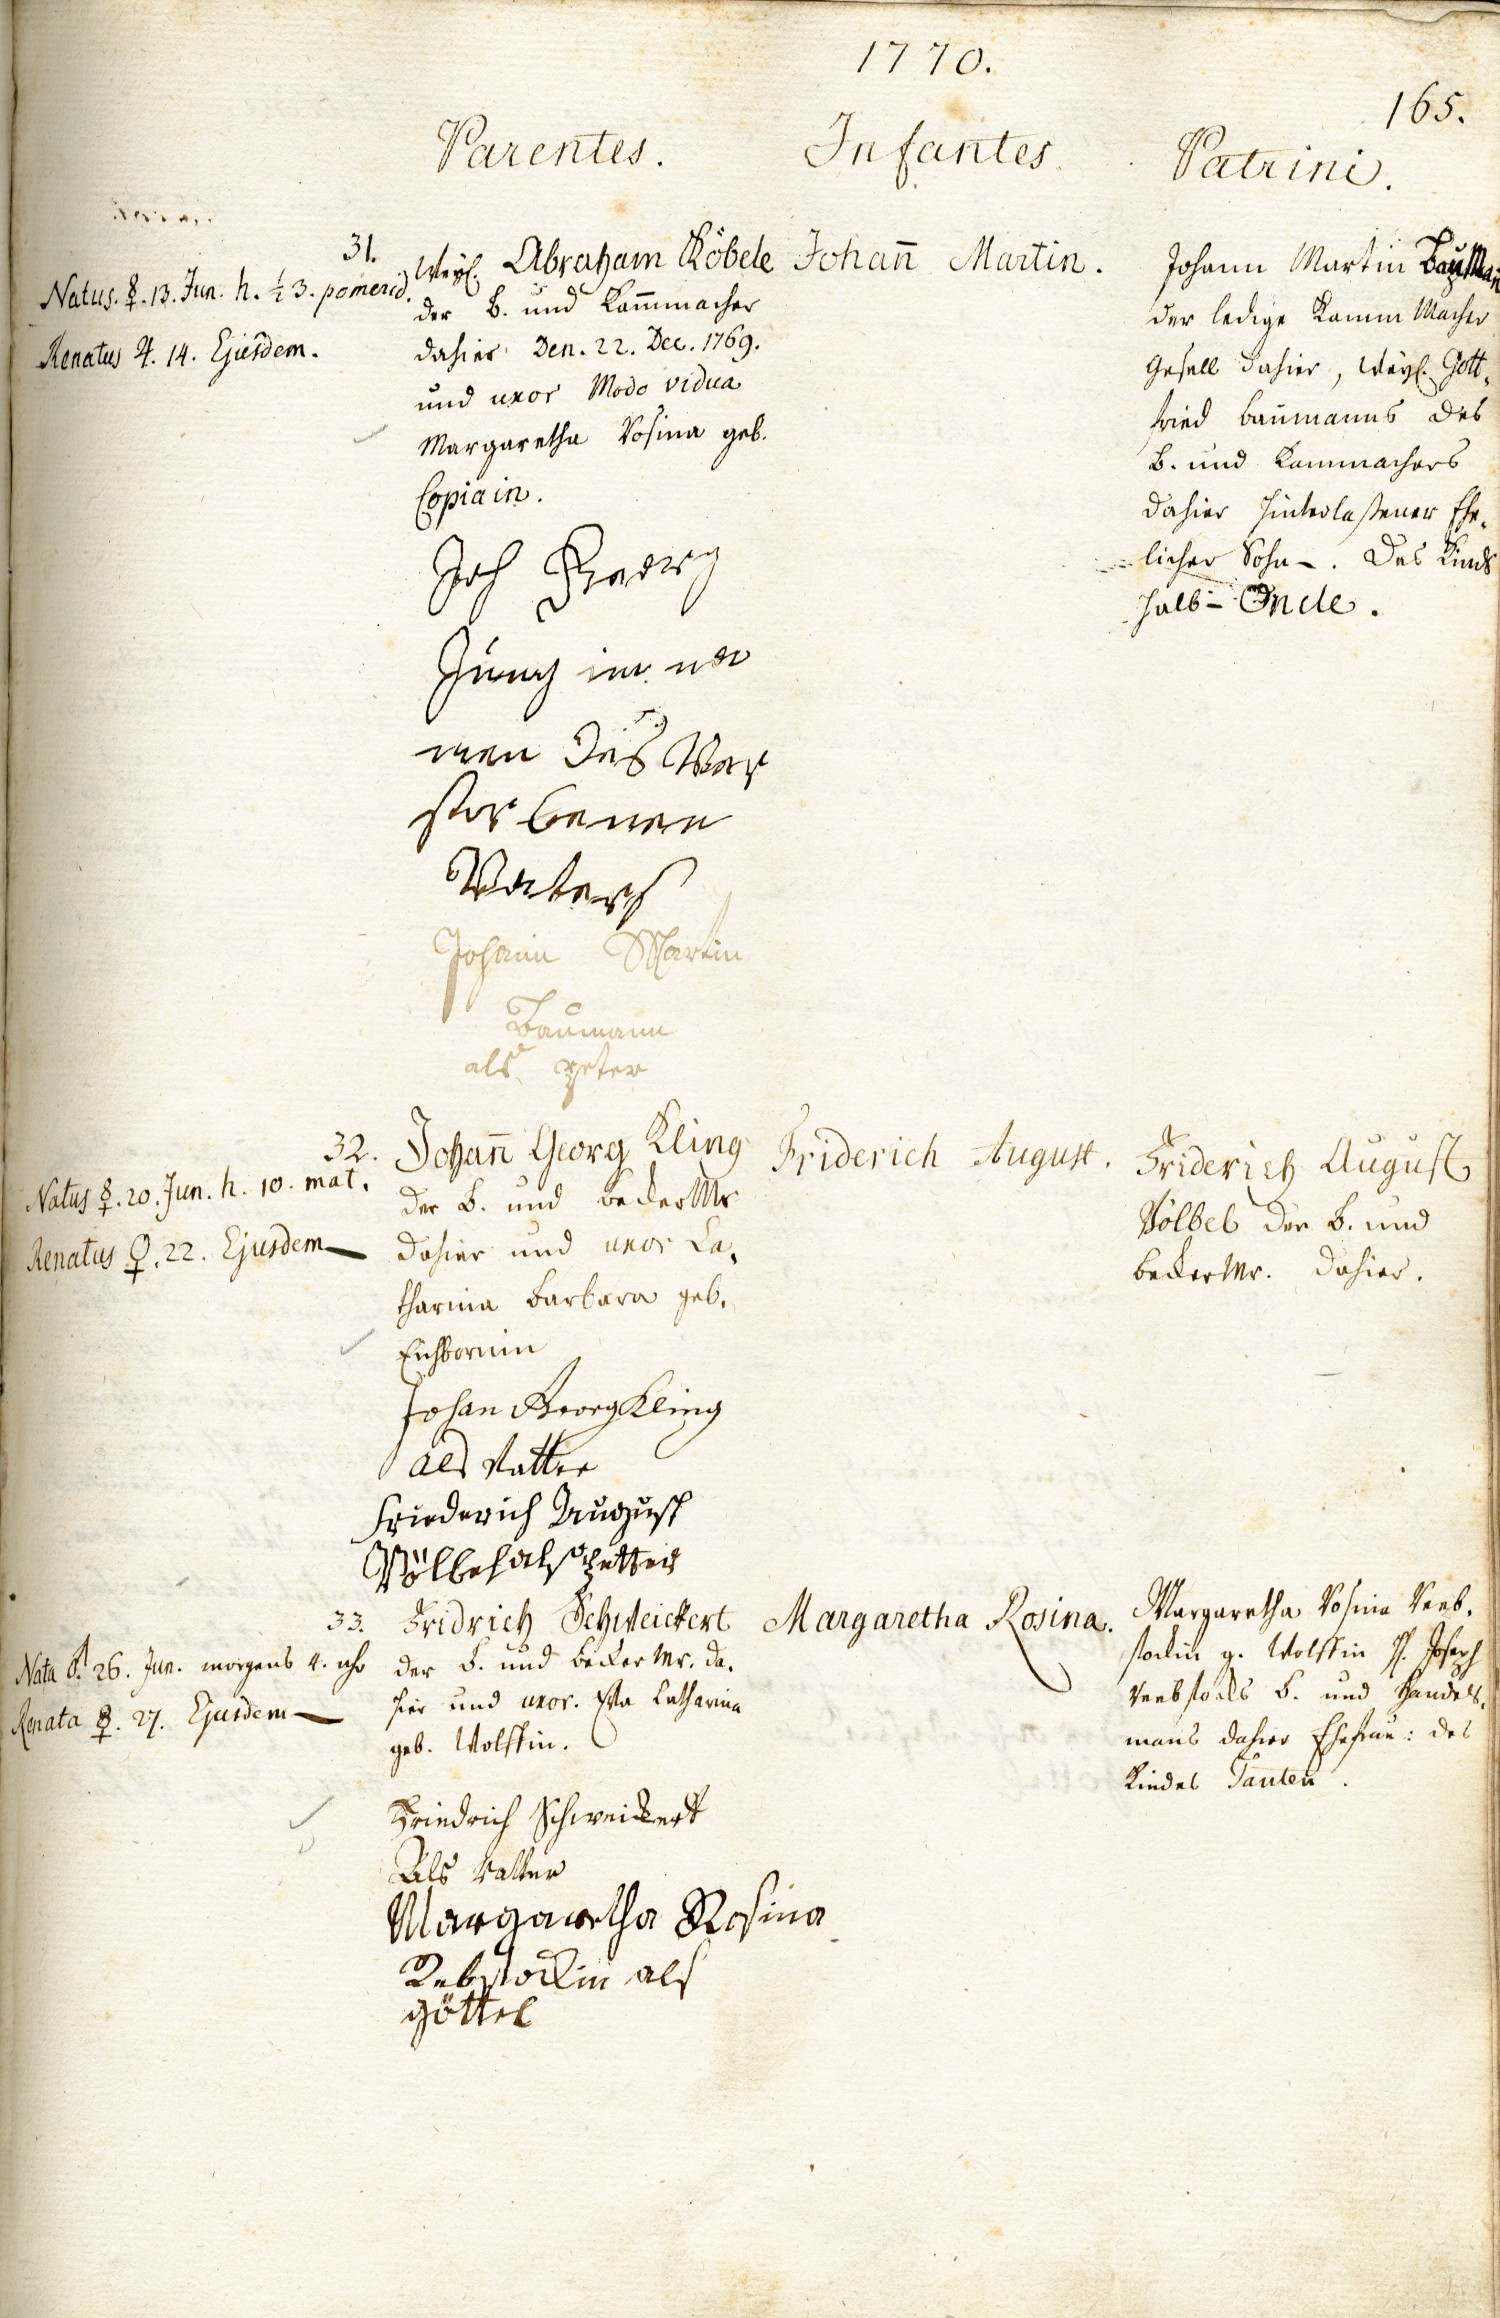 1770.
165.
Parentes. Infantes. Patrini.
31.
Natus. ☿. 13. Jun. h. ½ 3. pomerid.
Renatus ♃. 14. Ejusdem.
Weyl. Abraham Köbele
der B. und Kam̄macher
dahier den. 22. Dec. 1769.
und uxor modo vidua
Margaretha Rosina geb.
Copiain.
Joh
Jung im na
men des Ver
storbenen
Vaters
Johann Martin
Baumann
als pfeter
Johan̄ Martin.
Johann Martin Bauman
der ledige Kamm Macher
Gesell dahier, Weyl. Gott-
fried Baumanns des
B. und Kammachers
dahier hinterlaßener Ehe-
licher Sohn. Des Kinds
halb-Oncle.
32.
Natus ☿. 20. Jun. h. 10. mat.
Renatus ♀. 22. Ejusdem
Johan̄ Georg Kling
der B. und becker Mr
dahier und uxor Ca-
tharina Barbara geb.
Eichbornin
Johan Georg Kling
als Vatter
Friederich August
Völbel als Petter
Friderich August.
Friderich August
Völbel der B. und
becker Mr. dahier.
33.
Nata ♂. 26. Jun. morgens 4. uhr
Renata ☿. 27. Ejusdem
Fridrich Schweickert
der B. und becker Mr. da-
hier und uxor. Eva Catharina
geb. Wolffin.
Friedrich Schweickert
Als Vatter
Margaretha Rosina
Rebstockin als
göttel
Margaretha Rosina.
Margaretha Rosina Reeb-
stockin g. Wolffin H. Joseph
Reebstocks B. und Handels-
manns dahier Ehefrau: des
Kindes Tanten.